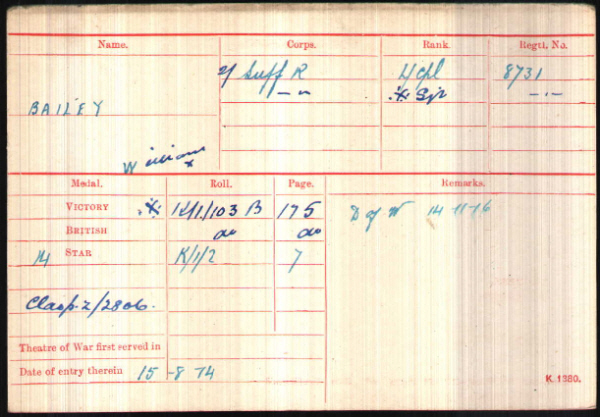 Name. Corps. Rank. Regtl. No.
2/ Suff R L/Cpl 8731
-〃- ※ Sjt -〃-
BAILEY
William
x
Medal. Roll. Page. Remarks.
VICTORY ※ K/1/103 B 175 D of W 14-11-16
BRITISH do do
14 STAR K/1/2 7
Clasp. Z/2806.
Theatre of War first served in
Date of entry therein 15-8-14
K 1380.